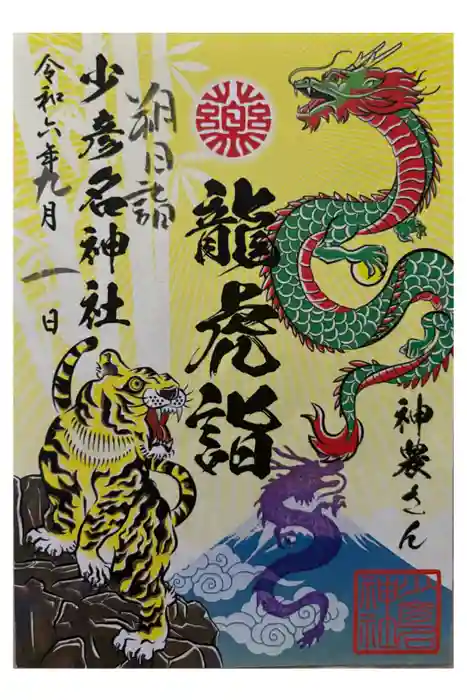 龍虎詣
神農さん
朔日詣
少彦名神社
令和六年九月一日
少彦名神社